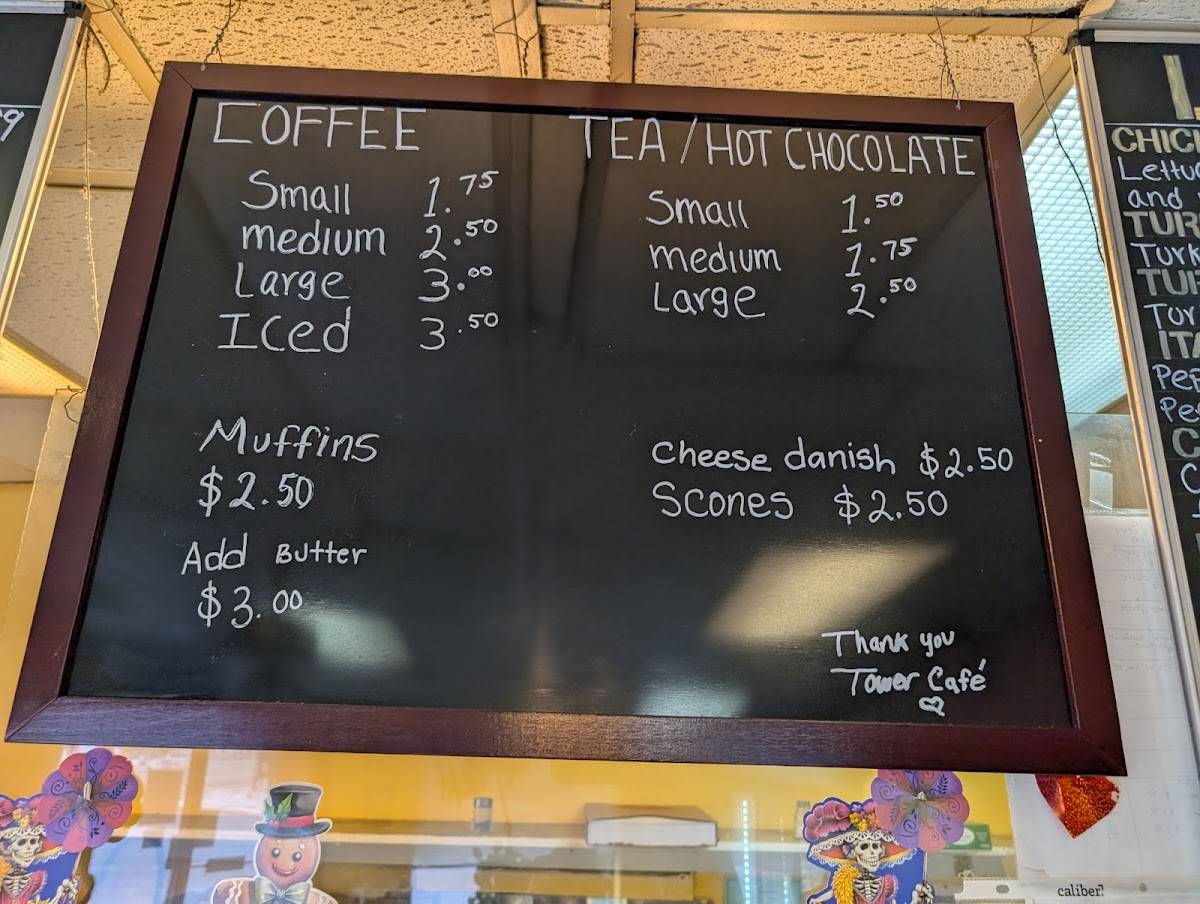 COFFEE
Small 1.75
medium 2.50
Large 3.00
Iced 3.50
TEA / HOT CHOCOLATE
Small 1.50
medium 1.75
Large 2.50
Muffins
$2.50
Add Butter
$3.00
Cheese danish $2.50
Scones $2.50
Thank you
Tower Café
CHIC
Lettu
and
TUR
Turk
TU
Tur
ITA
Pep
Pe
caliber